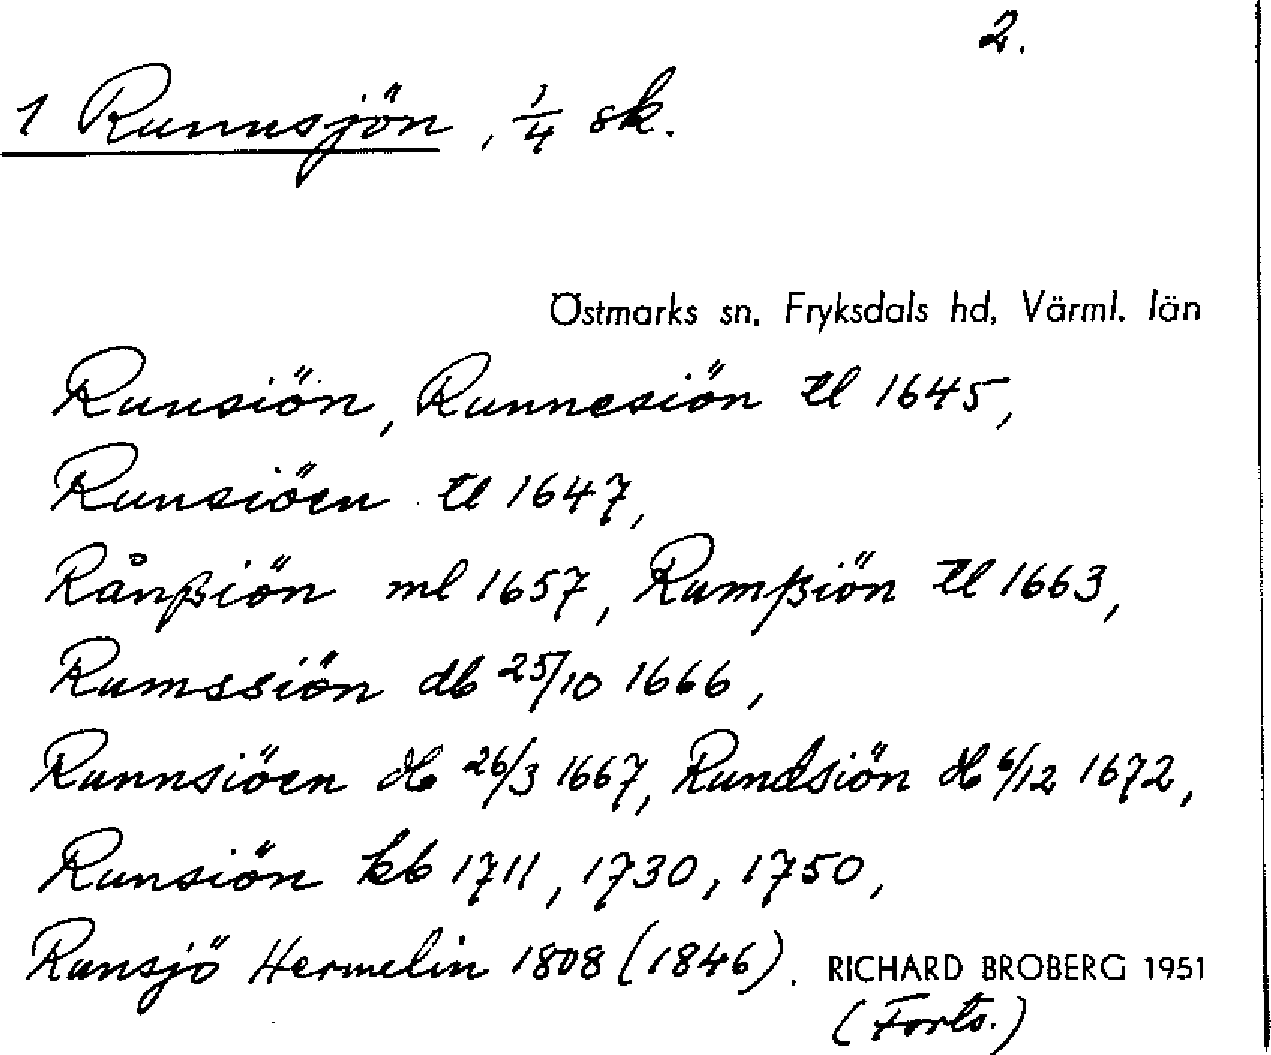 2.
1 Runnsjön, 1/4 sk.
Östmarks sn. Fryksdals hd, Värml. län
Runsiön, Runnesiön tl 1645,
Runsiöen tl 1647,
Rånßiön ml 1657, Rumßiön tl 1663,
Rumssiön db 25/10 1666,
Runnsiöen db 26/3 1667, Rundsiön db 6/12 1672,
Runsiön kb 1711, 1730, 1750,
Runsjö Hermelin 1808 (1846). RICHARD BROBERG 1951
(Forts.)